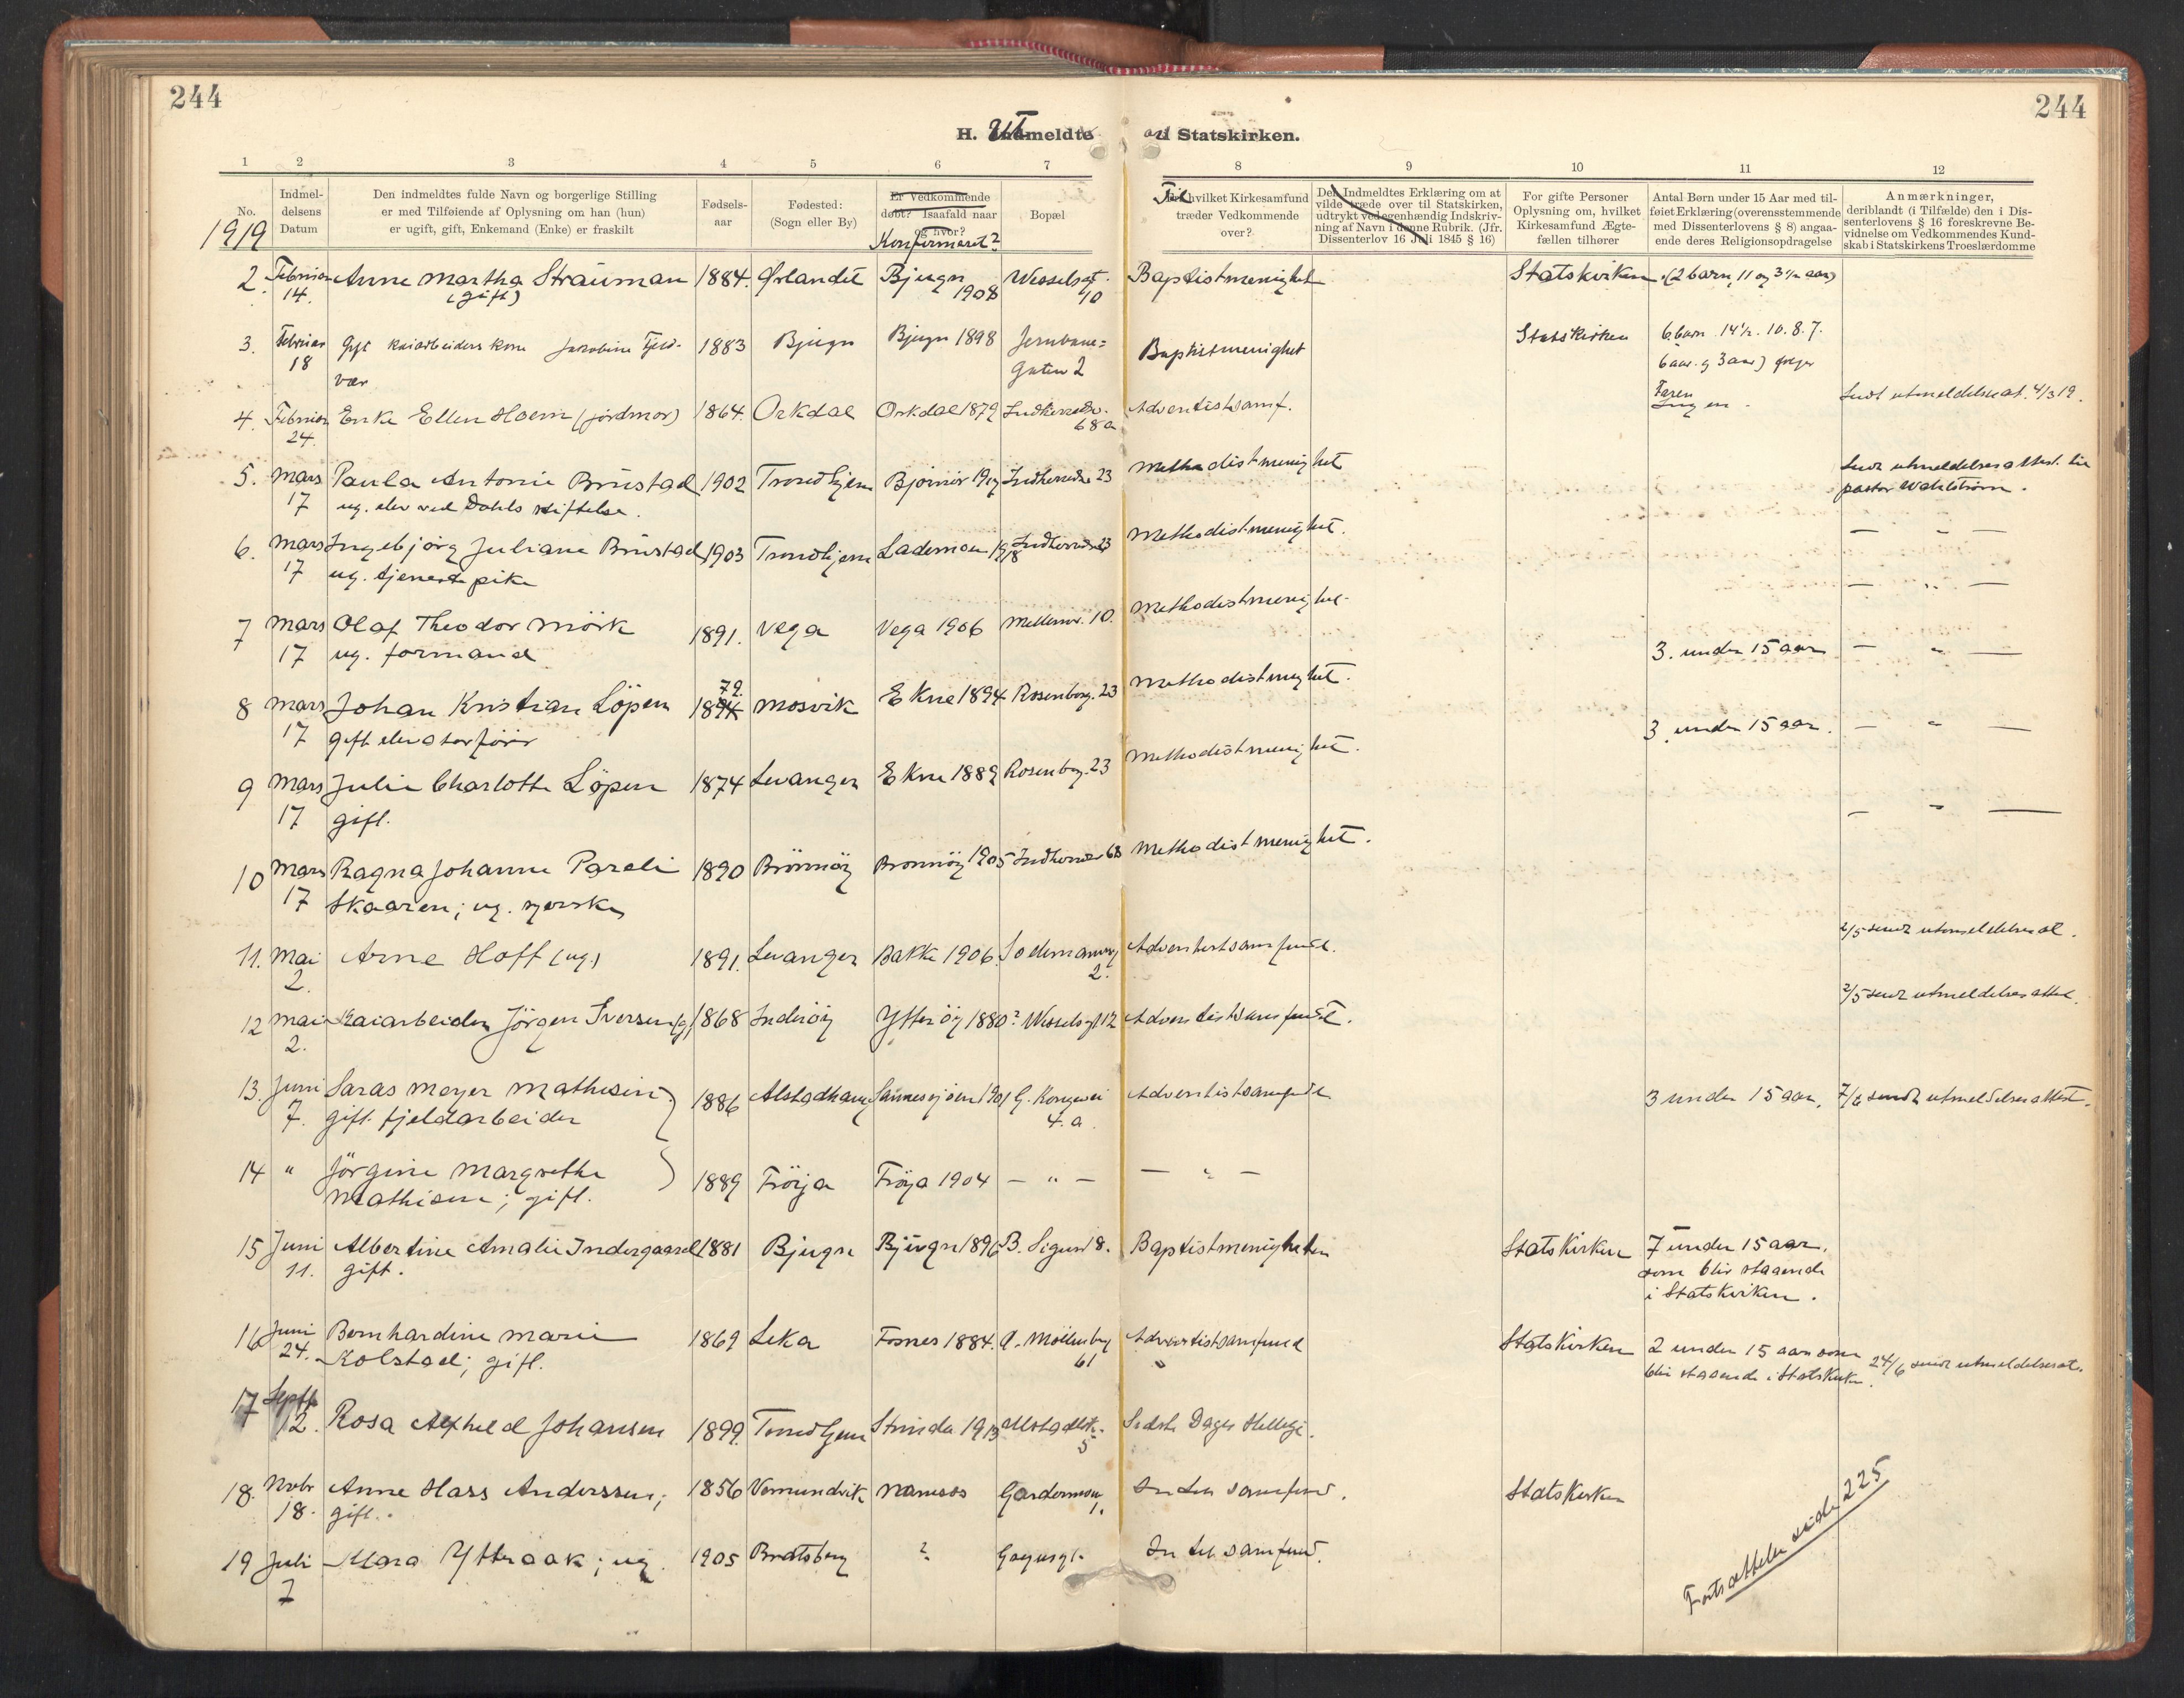 244
244
H. Utmeldte av Statskirken.
1 2 3 4 5 6 7 8 9 10 11 12
No.
1919
Indmel-
delsens
Datum
Den indmeldtes fulde Navn og borgerlige Stilling
er med Tilføiende af Oplysning om han (hun)
er ugift, gift, Enkemand (Enke) er fraskilt
Fødsels-
aar
Fødested:
(Sogn eller By)
Er Vedkommende
døbt? Isaafald naar
og hvor?
Konfirmeret?
Bopæl
Til hvilket Kirkesamfund
træder Vedkommende
over?
Den Indmeldtes Erklæring om at
vilde træde over til Statskirken,
udtrykt ved egenhændig Indskriv-
ning af Navn i denne Rubrik. (Jfr.
Dissenterlov 16 Juli 1845 § 16)
For gifte Personer
Oplysning om, hvilket
Kirkesamfund Ægte-
fællen tilhører
Antal Børn under 15 Aar med til-
føiet Erklæring (overensstemmende
med Dissenterlovens § 8) angaa-
ende deres Religionsopdragelse
Anmærkninger,
deriblandt (i Tilfælde) den i Dis-
senterlovens § 16 foreskrevne Be-
vidnelse om Vedkommendes Kund-
skab i Statskirkens Troeslærdomme
2. Februar Anne Martha Strauman 1884. Ørlandet Bjugn Wesselsgt. Baptistmenighet Statskirken (2 barn, 11 og 3½ aar)
14. (gift) 1908 10
3. Februar Gift kaiarbeiders kone Jacobine Fjeld- 1883 Bjugn Bjugn 1898 Jernbane= Baptistmenighet Statskirken 6 barn 14½. 10. 8. 7.
18 vær gaten 2 6 aar. og 3 aar) følger
Faren
4. Februar Enke Ellen Hoem (jordmor) 1864. Orkdal Orkdal 1879 Indherredsv. Adventistsamf. Ingen. Sendt utmeldelsesat. 4/3 19.
24. 68 a
5. Mars Paula Antonie Brustad 1902 Trondhjem Bjørnør 1917 Indherredsv. 23 Methodistmenighet Sendt utmeldelsesattest til
17 ug. elev ved Dahls stiftelse. pastor Wahlstrøm.
6. Mars Ingebjörg Juliane Brustad 1903 Trondhjem Lademoen 1918 Indherredsv. 23 Methodistmenighet. — " —
17 ug. tjenestepike
7 Mars Olaf Theodor Mörk 1891. Vega Vega 1906 Mellemv. 10. Methodistmenighet. — " —
17 ug. formand
8 Mars Johan Kristian Löpen 1894 79. Mosvik Ekne 1894 Rosenborg. 23 Methodistmenighet. 3. under 15 aar — " —
17 gift elevatorförer
9 Mars Julie Charlotte Löpen 1874 Levanger Ekne 1889 Rosenborg. 23 Methodistmenighet. 3 under 15 aar. — " —
17 gift.
10 Mars Ragna Johanne Pareli 1890 Brönnöy Bronnöy 1905 Indherredsv 68 Methodistmenighet. — " —
17 Skaaren; ug. syerske
11. Mai Arne Hoff (ug.) 1891. Levanger Bakke 1906. Adventistsamfund. 2/5 sendt utmeldelsesat.
2. 2.
12 Mai Kaiarbeider Jörgen Iversen (g) 1868 Inderöy Ytteröy 1880? Wesselsgt 12 Adventistsamfund. 2/5 sendt utmeldelsesattest.
2.
13. Juni Saras Meyer Mathisen 1886 Alstadhaug Sannesjöen 1901 G. Kongevei Adventistsamfund 3 under 15 aar. 7/6 sendt utmeldelsesattest.
7. gift. fjeldarbeider 4. a.
14 " Jörgine Margrethe 1889 Fröya Fröya 1904 — " — — " —
Mathisen; gift.
15 Juni Albertine Amalie Indergaard 1881 Bjugn Bjugn 1896 B. Sigurd 8. Baptistmenigheten Statskirken 7 under 15 aar.
11. gift. som blir staaende
i Statskirken.
16 Juni Bernhardine Marie 1869 Leka Fosnes 1884. Ø. Möllenberg Adventistsamfund Statskirken 2 under 15 aar som
24. Kolstad; gift. 61 " blir staaende i Statskirken 24/6 sendt utmeldelsesat.
17 Septb.
12. Rosa Alfhild Johansen 1899. Trondhjem Strinda 1913 Sidste Dages Hellige.
5
18. Novbr Anne Hass Anderssen; 1856 Vemundvik Namsos Gardermoen Intet samfund. Statskirken
18. gift. 1.
19 Juli Klara Ytteraak; ug. 1905 Bratsberg ? Intet samfund.
7
Fortsættelse side 225